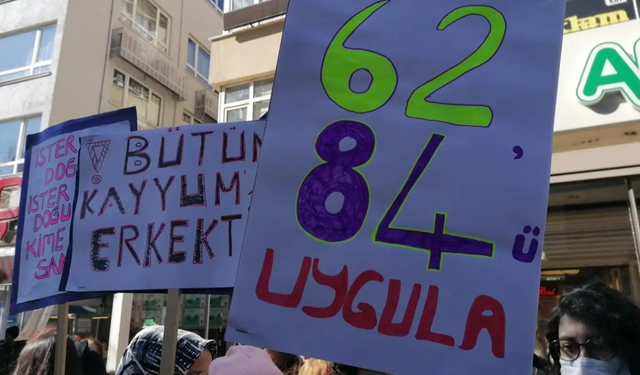 İSTER
DOĞ
İSTER
DOĞU
KİME
SAN
BÜTÜN
KAYYUM
ERKEKT
62
84'ü
UYGULA